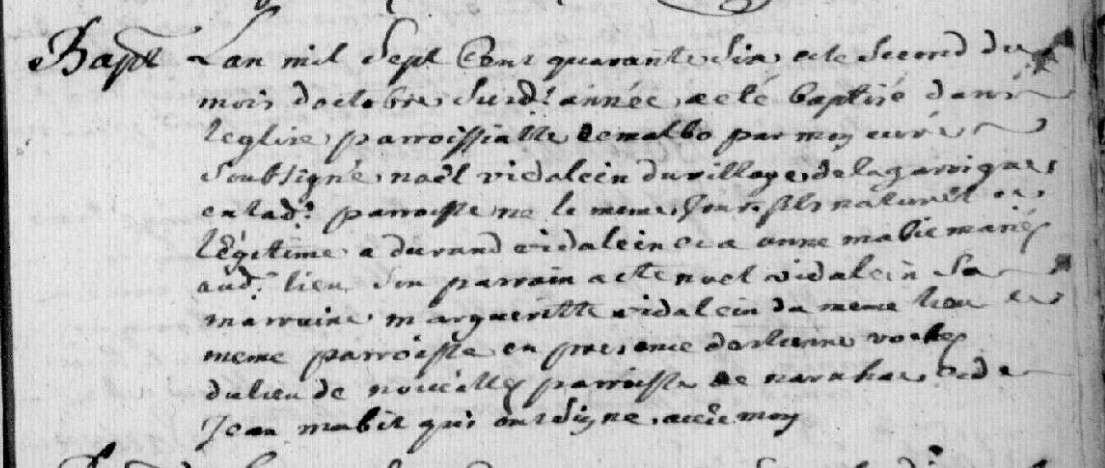 Bapt Lan mil Sept Cent quarante Six et le Second du
mois doctobre Susdt année, a eté baptisé dans
leglise parroissialle de malbo par moy curé
Soubsigné, noël vidalein du village de lagarrigue
en lad. parroisse ne le meme Jour fils naturel et
légitime a durand vidalein et a anne mabie mariés
aud. lieu Son parrain a eté noel vidalein Sa
marraine margueritte vidalein du meme lieu et
meme parroisse en presence
du lieu de parroisse de narnhac et de
Jean mabit qui ont Signé avec moy